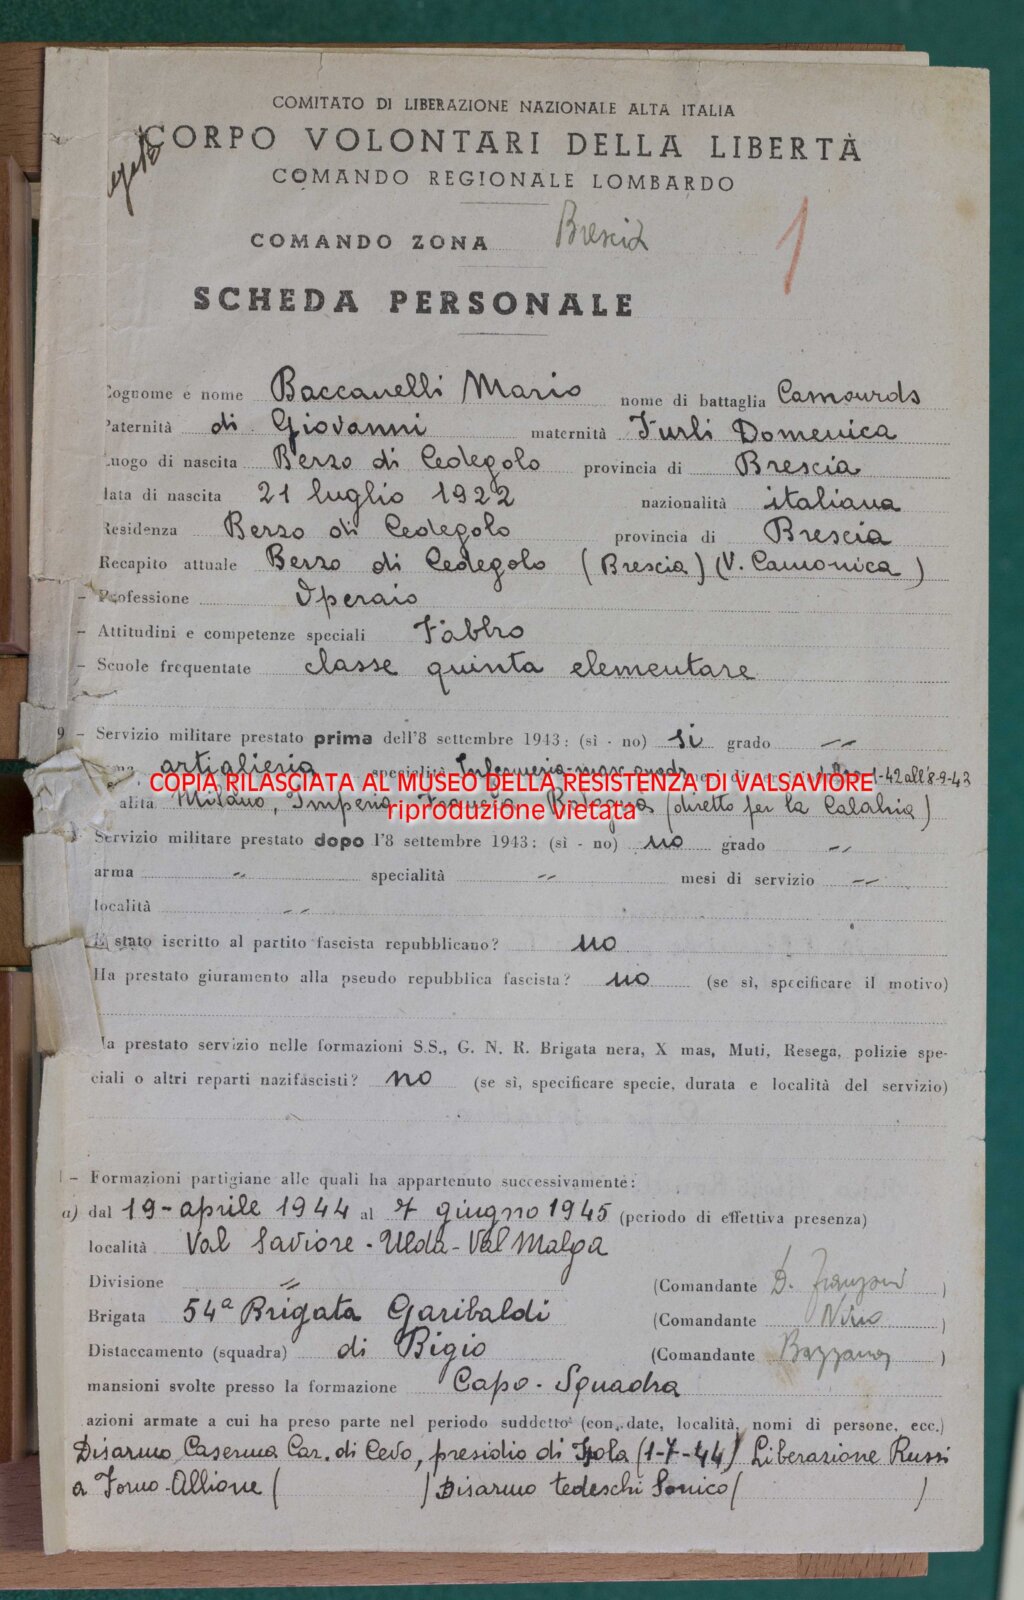 COMITATO DI LIBERAZIONE NAZIONALE ALTA ITALIA
CORPO VOLONTARI DELLA LIBERTÀ
COMANDO REGIONALE LOMBARDO
COMANDO ZONA Brescia
1
SCHEDA PERSONALE
Cognome e nome Baccanelli Mario nome di battaglia
Paternità di Giovanni maternità Turli Domenica
Luogo di nascita Berzo di Cedegolo provincia di Brescia
data di nascita 21 luglio 1922 nazionalità italiana
Residenza Berzo di Cedegolo provincia di Brescia
Recapito attuale Berzo di Cedegolo (Brescia) (V. Camonica)
- Professione Operaio
- Attitudini e competenze speciali Fabbro
- Scuole frequentate classe quinta elementare
9 - Servizio militare prestato prima dell'8 settembre 1943: (sì - no) si grado -- 
artiglieria specialità 1-42 all'8-9-43
COPIA RILASCIATA AL MUSEO DELLA RESISTENZA DI VALSAVIORE
alità Milano, Imperia, Francia, Bologna (diretto per la Calabria)
riproduzione vietata
Servizio militare prestato dopo l'8 settembre 1943: (sì - no) no grado --
arma -- specialità -- mesi di servizio --
località --
È stato iscritto al partito fascista repubblicano? no
Ha prestato giuramento alla pseudo repubblica fascista? no (se sì, specificare il motivo)
Ha prestato servizio nelle formazioni S.S., G. N. R. Brigata nera, X mas, Muti, Resega, polizie spe-
ciali o altri reparti nazifascisti? no (se sì, specificare specie, durata e località del servizio)
- Formazioni partigiane alle quali ha appartenuto successivamente:
a) dal 19-aprile 1944 al 7 giugno 1945 (periodo di effettiva presenza)
località Val Saviore - Ulda - Val Malga
Divisione -- (Comandante D. Franzoni)
Brigata 54ª Brigata Garibaldi (Comandante Nino)
Distaccamento (squadra) di Bigio (Comandante Bazzana)
mansioni svolte presso la formazione Capo-Squadra
azioni armate a cui ha preso parte nel periodo suddetto (con date, località, nomi di persone, ecc.)
Disarmo Caserma Car. di Cevo, presidio di Isola (1-7-44) Liberazione Russi
a Forno-Allione ( ) Disarmo tedeschi Sonico ( )